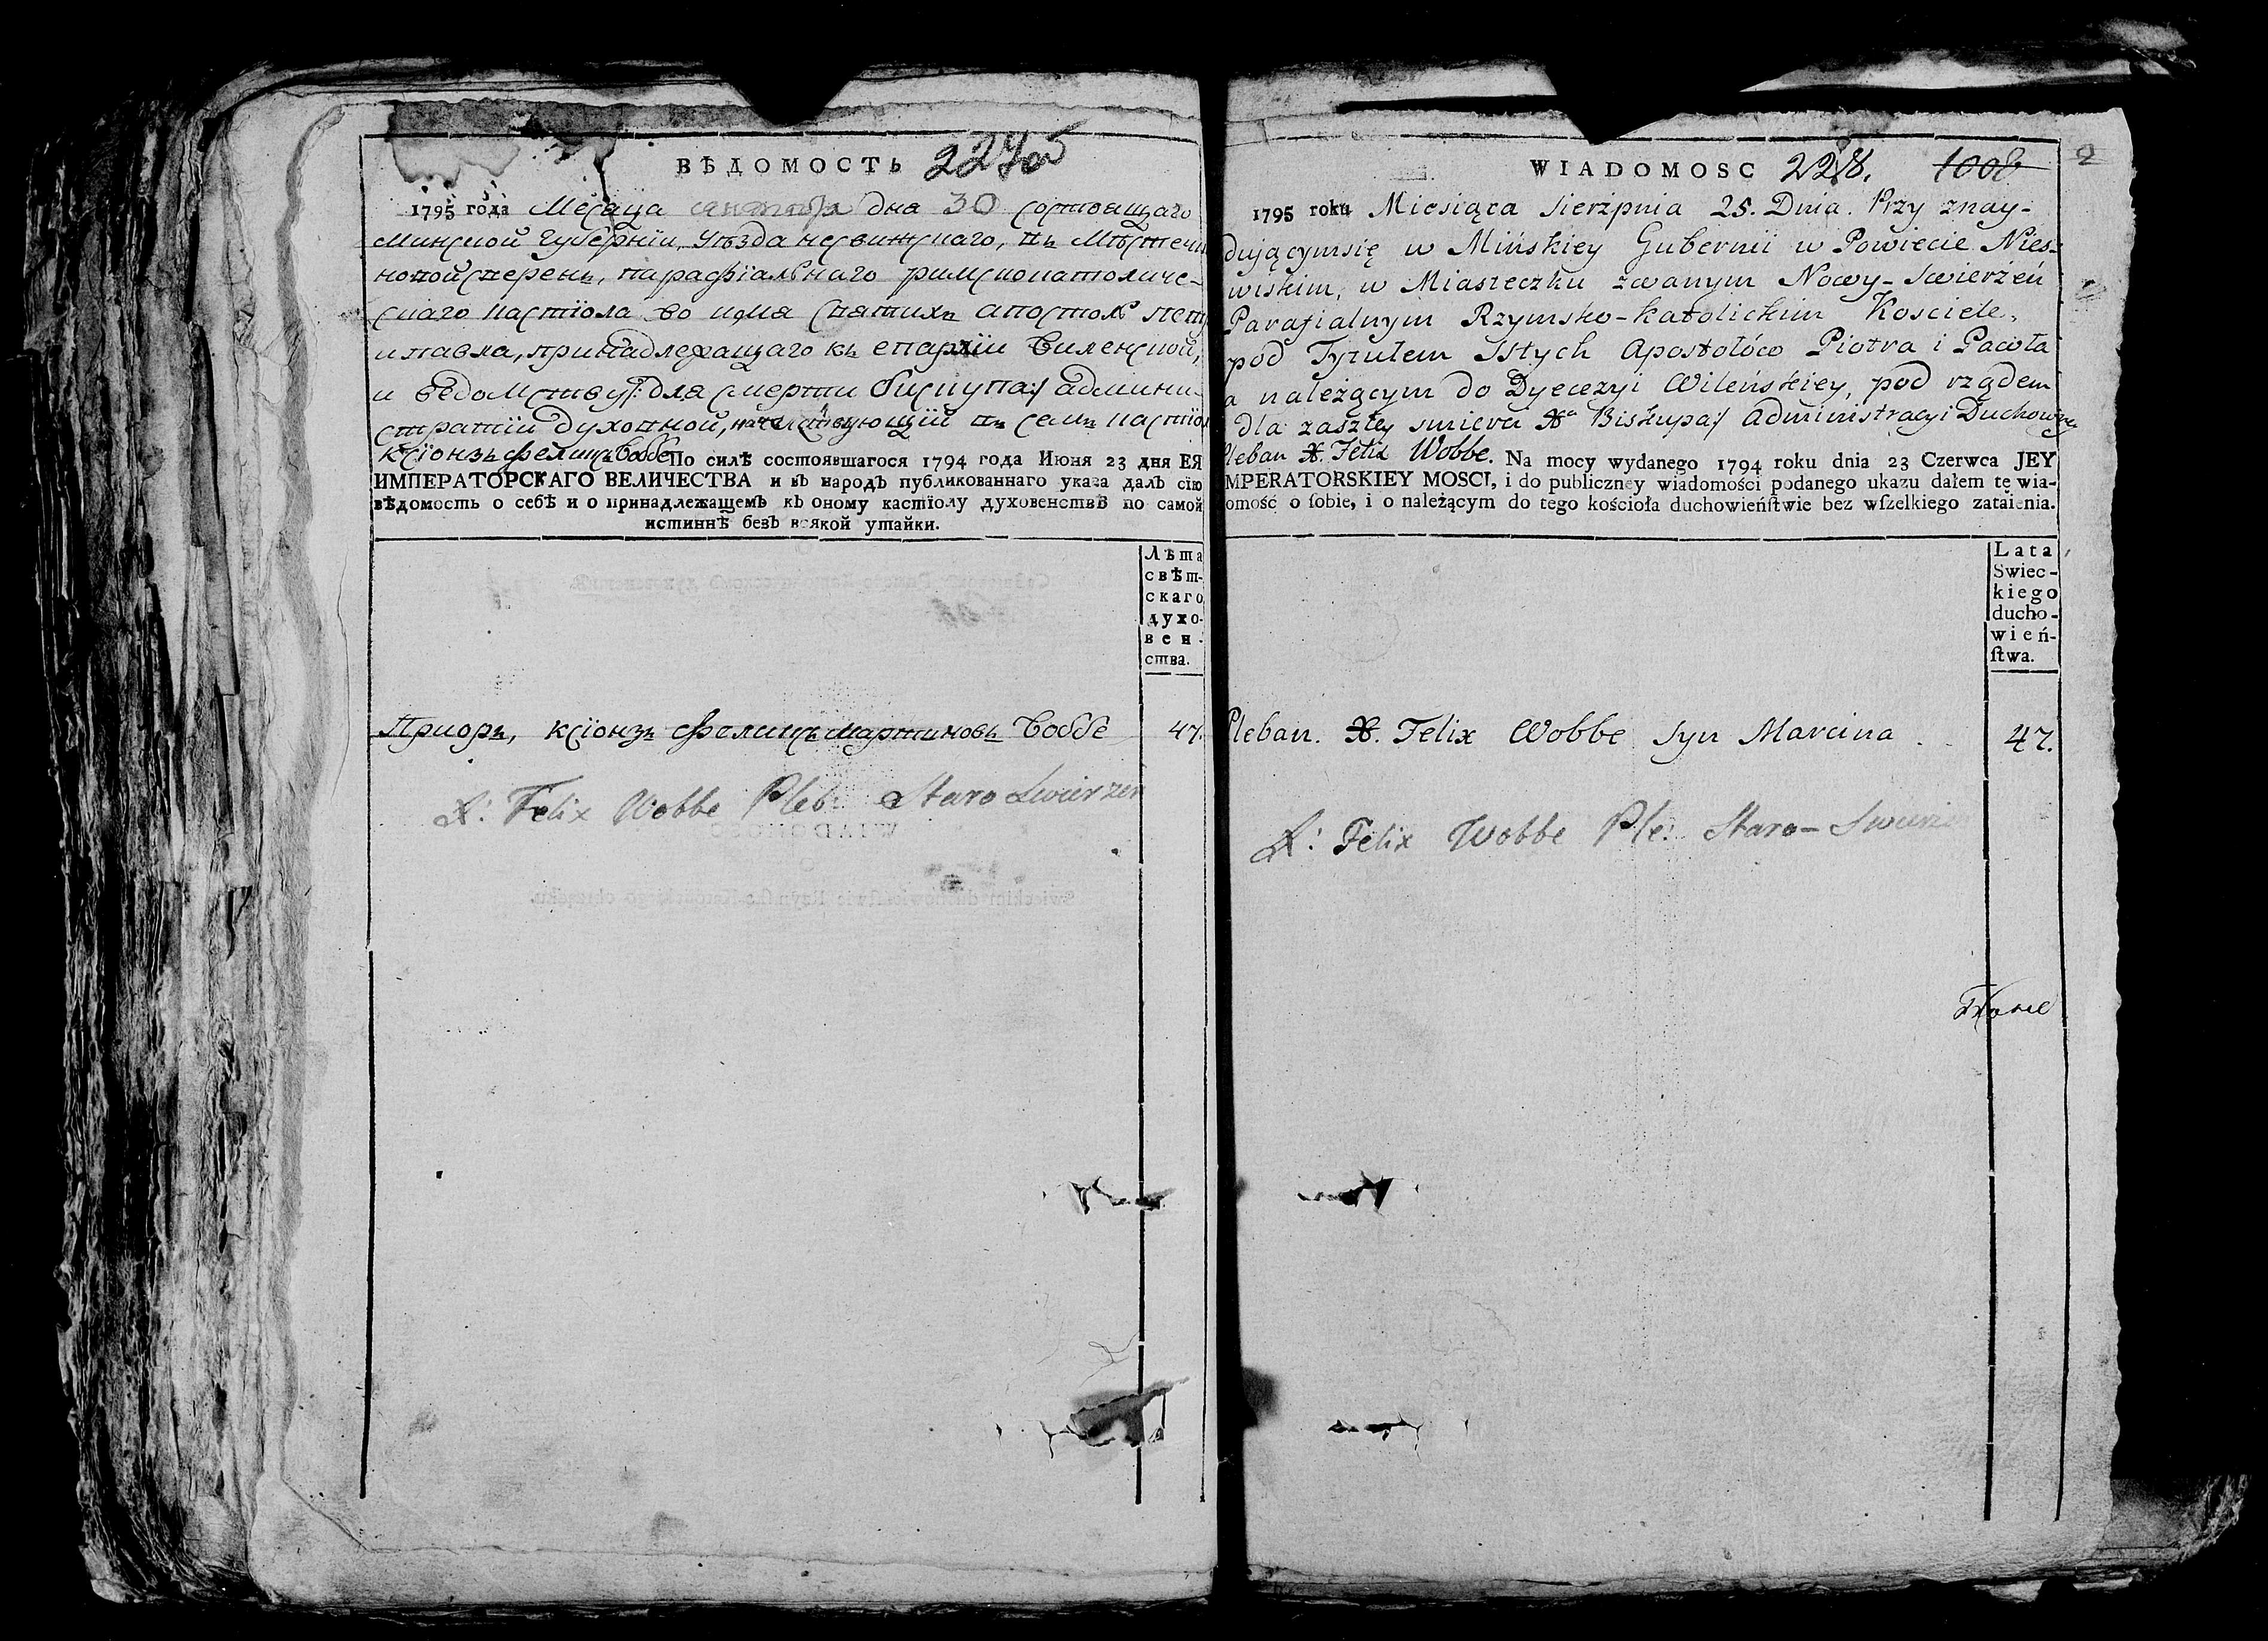 ВѢДОМОСТЬ
1795 года Месяца сентября дня 30 состоящаго
Минской Губернїи, Уѣзда несвижскаго, въ Мѣстечк
новой сверень, парафїальнаго римскокатоличе-
скаго кастїола во имя святихъ апостолъ петр
и павла, принадлежащаго къ епархїи Виленской,
и ведомству /: для смерти бискупа :/ админи-
стратїи духовной, началствующїй въ семъ кастїол
ксїонзъ феликсъ Воббе По силѣ состоявшагося 1794 года Июня 23 дня ЕЯ
ИМПЕРАТОРСКАГО ВЕЛИЧЕСТВА и въ народъ публикованнаго указа далъ сїю
вѣдомость о себѣ и о принадлежащемъ къ оному кастїолу духовенствѣ по самой
истиннѣ безъ всякой утайки.
Лѣта
свѣт-
скаго
духо-
вен-
ства.
Приоръ, ксїонзъ Феликсъ мартиновъ Воббе 47.
X: Felix Wobbe Pleb: Staro Swierzen
WIADOMOSC 228. 1008
2
1795 roku Miesiąca Sierzpnia 25. Dnia. Przy znay-
dującymsię w Mińskiey Gubernii w Powiecie Nies-
wiskim, w Miasteczku zwanym Nowy-Swierżeń
Parafialnym Rzymsko-katolickim Kosciele,
pod Tytułem SStych Apostołów Piotra i Pawła
a należącym do Dyecezyi Wileńskiey, pod rządem
dla zaszłey smierci Xa Biskupa:/ Administracyi Duchowney
Pleban X. Felix Wobbe. Na mocy wydanego 1794 roku dnia 23 Czerwca JEY
MPERATORSKIEY MOSCI, i do publiczney wiadomości podanego ukazu dałem tę wia-
omość o ſobie, i o należącym do tego kościoła duchowieńſtwie bez wſzelkiego zataienia.
Lata
Swiec-
kiego
ducho-
wień-
ſtwa.
Pleban. X. Felix Wobbe Syn Marcina 47.
X: Felix Wobbe Ple: Staro-Swierzen